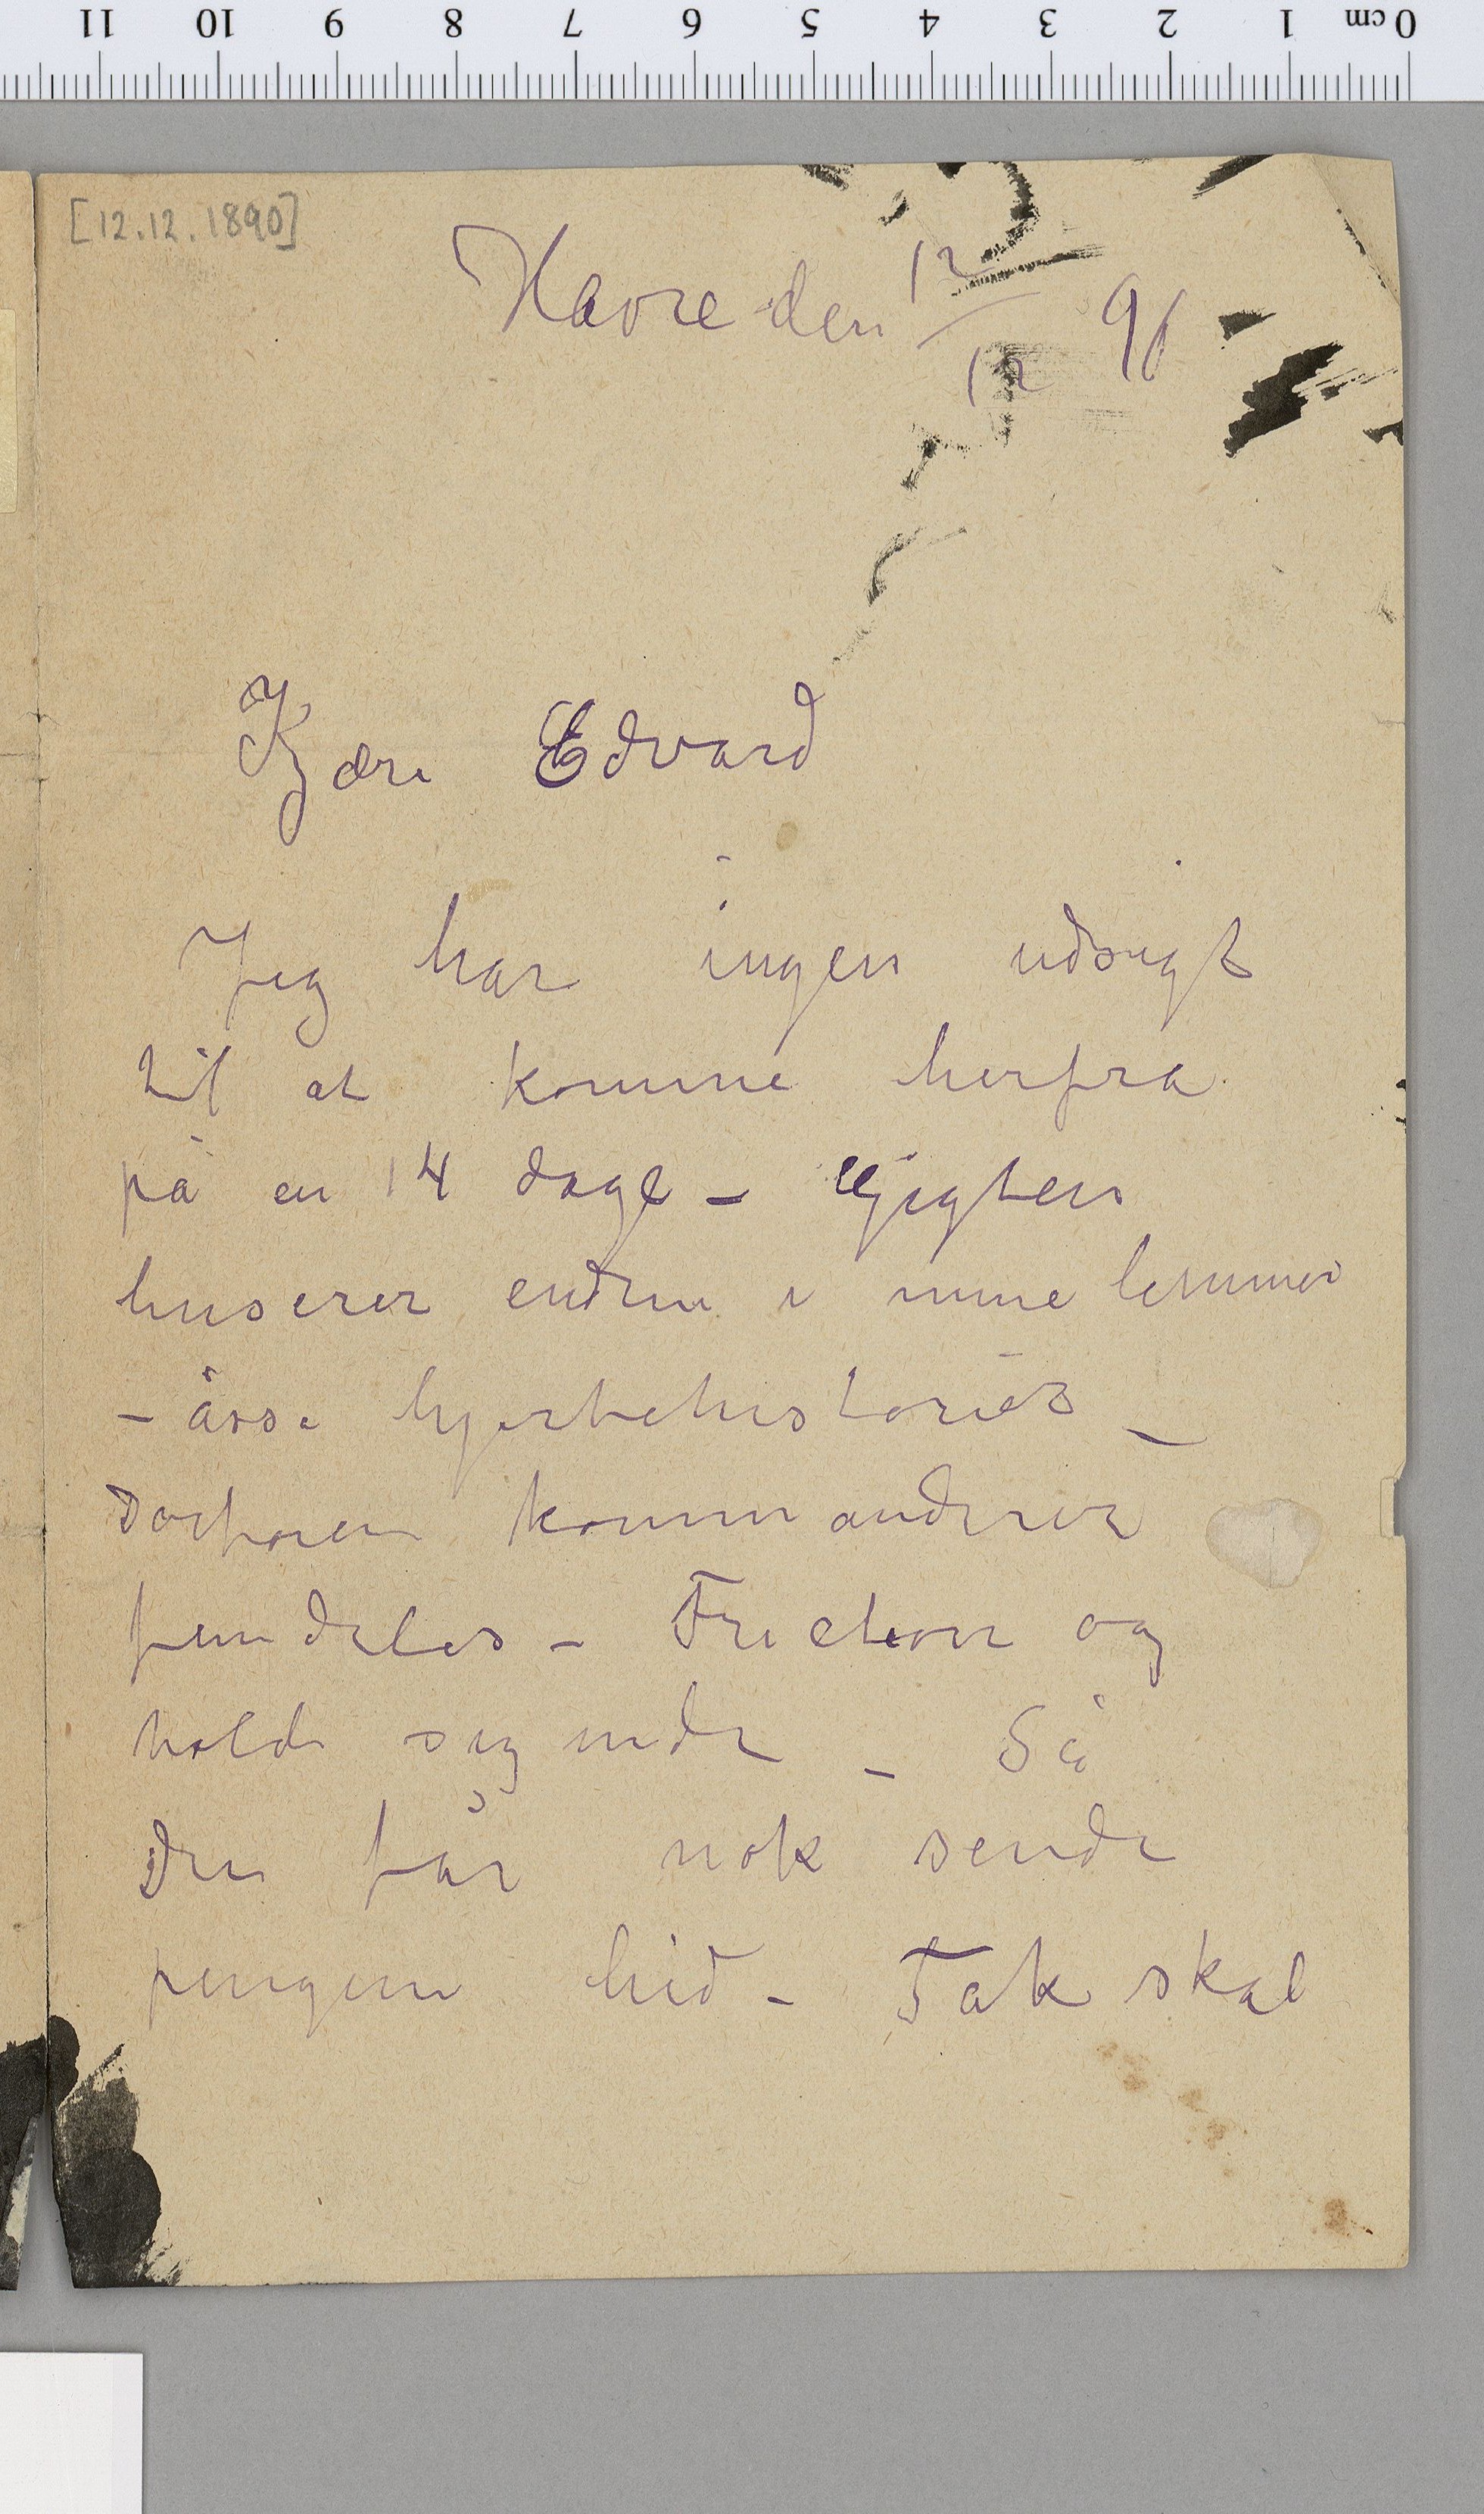 0 cm 1 2 3 4 5 6 7 8 9 10 11
[12.12.1890]
Havre den 12/12 90
Kjære Edvard
Jeg har ingen udsigt
til at komme herfra
på en 14 dage – Gigten
huserer endnu i mine lemmer
– åsse hjertehistorier –
Doctoren kommanderer
– Friction og
holde sig inde – Så
Du får nok sende
pengene hid – Tak skal